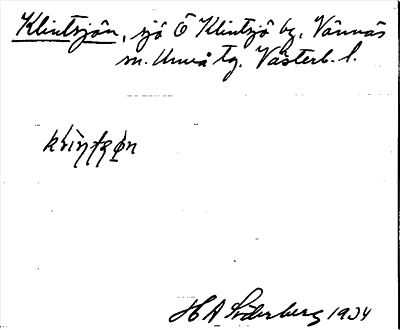 Klintsjön, sjö Ö Klintsjö by, Vännäs
sn. Umeå tg. Västerb. l.
H A Söderberg 1934